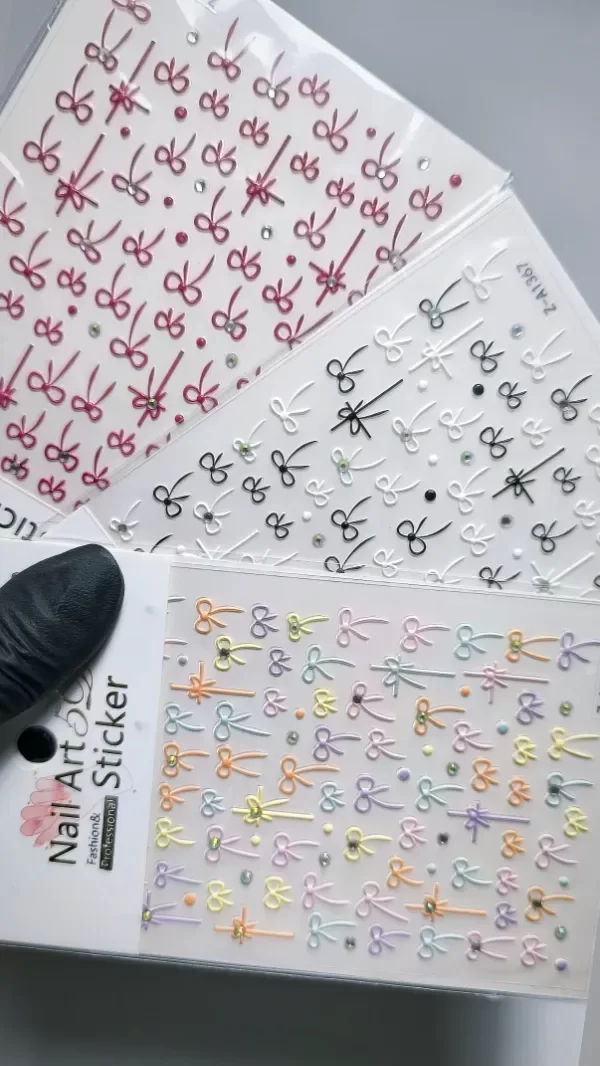 Z-A1367
Nail Art 5D
Sticker
Fashion&
Professional